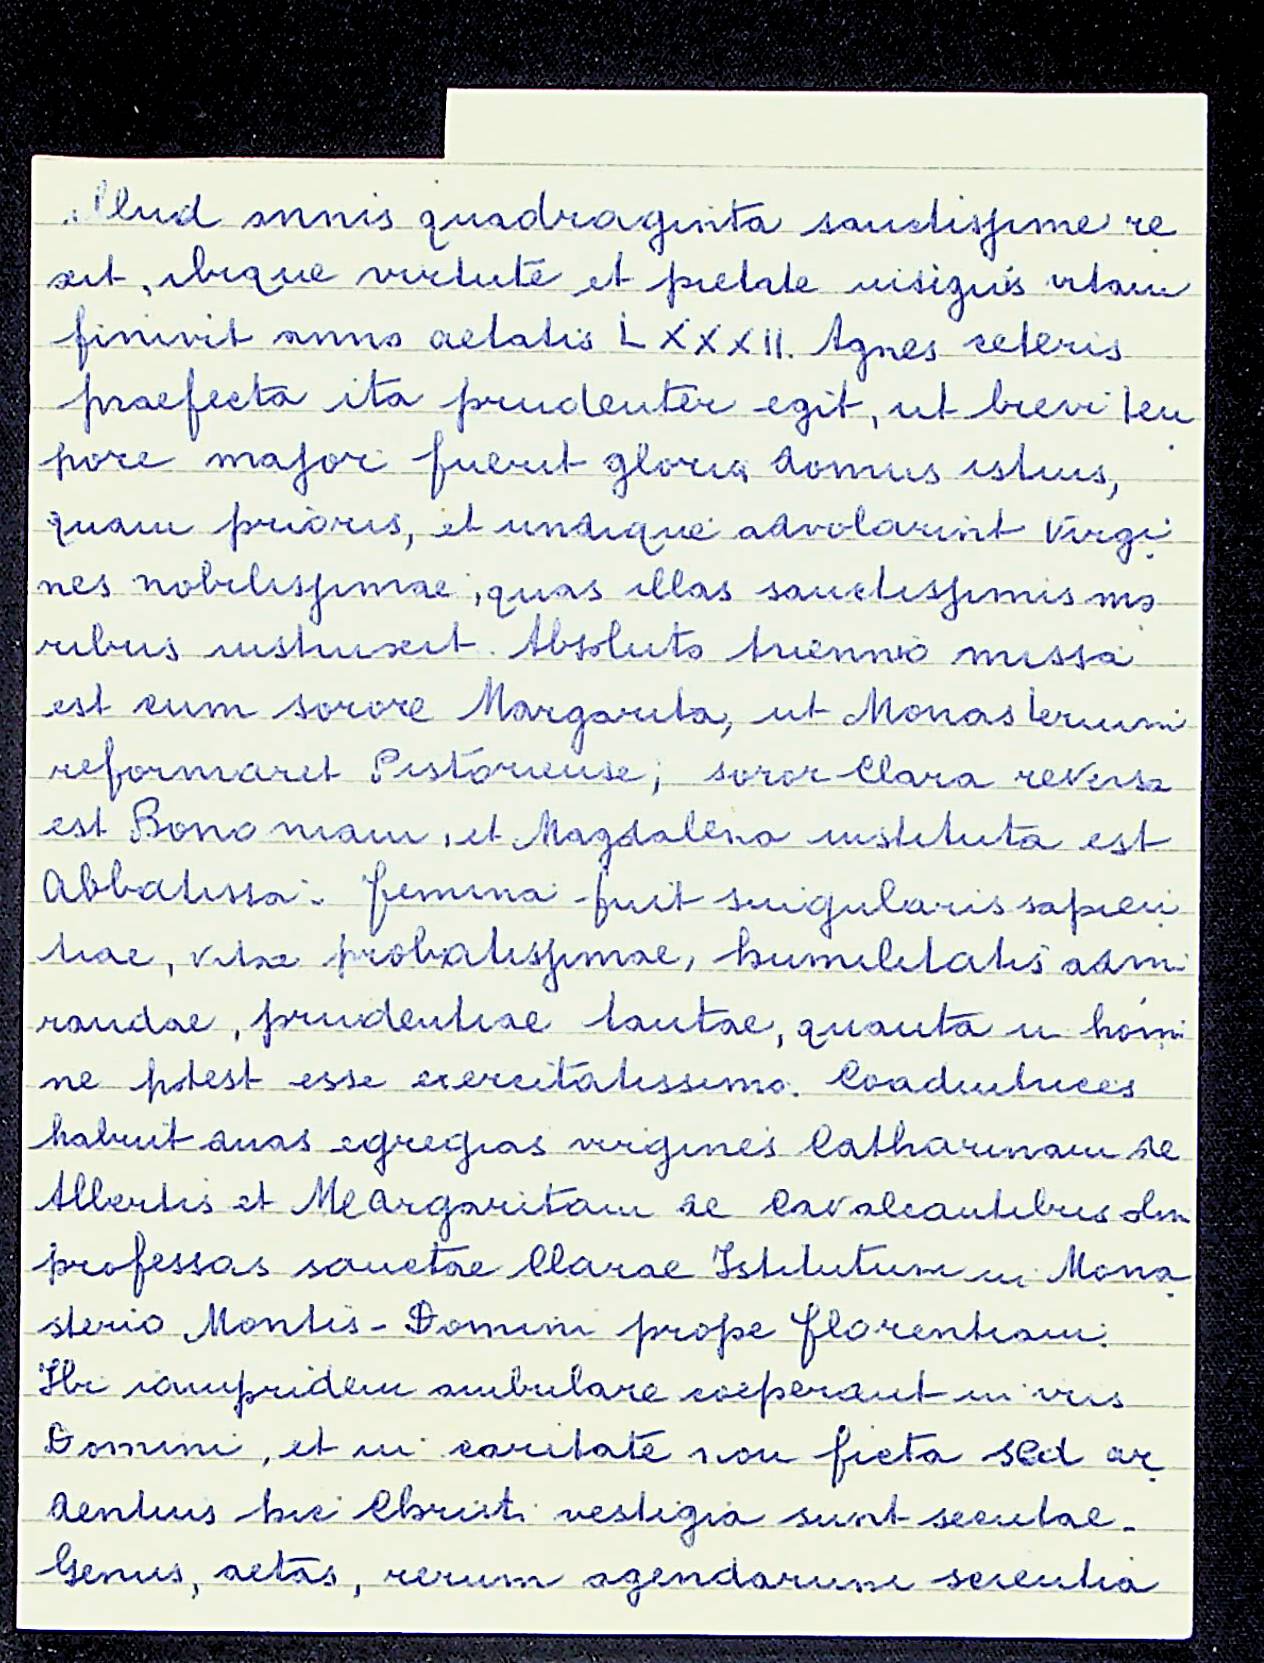 illud annis quadraginta sanctissime re
xit, ibique virtute et pietate insignis vitam
finivit anno aetatis LXXXII. Agnes ceteris
praefecta ita prudenter egit, ut brevi tem
pore major fuerit gloria domus istius,
quam prioris, et undique advolarint Virgi
nes nobilissimae, quas illas sanctissimis mo
ribus instruxit. Absoluto triennio missa
est cum sorore Margarita, ut Monasterium
reformaret Pistoriense; soror Clara reversa
est Bononiam, et Magdalena instituta est
Abbatissa. Femina fuit singularis sapien
tiae, vitae probatissimae, humilitatis admi
randae, prudentiae tantae, quanta in homi
ne potest esse exercitatissimo. Coadiutrices
habuit duas egregias virgines Catharinam de
Albertis et Margaritam de Cavalcantibus olim
professas sanctae Clarae Istitutum in Mona
sterio Montis-Domini prope Florentiam.
Ibi iampridem ambulare coeperant in viis
Domini, et in caritate non ficta sed ar
dentius hic Christi vestigia sunt secutae.
Genus, aetas, rerum agendarum scientia